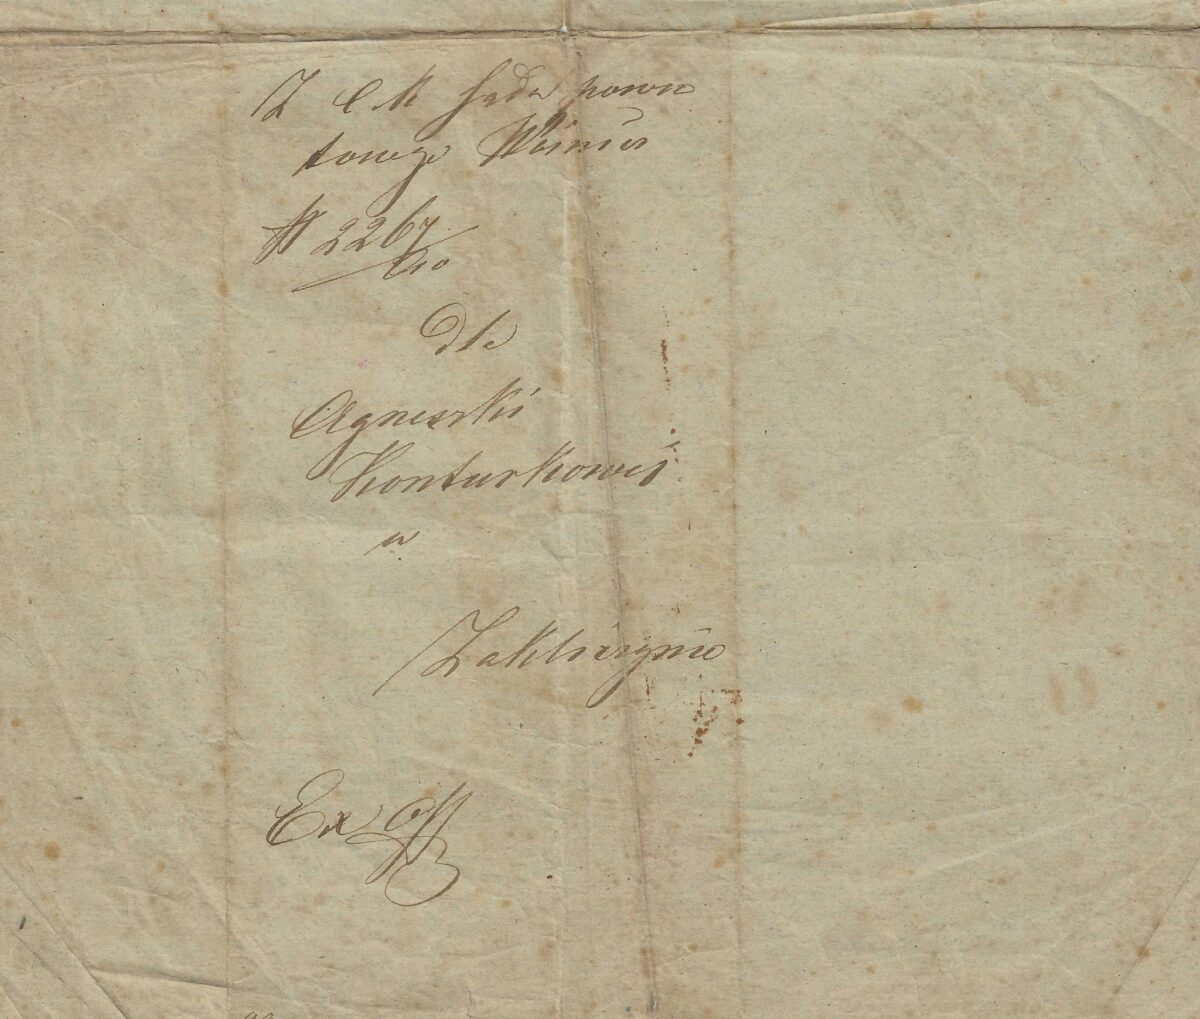 Z C K Sądu powia
towego Wiśnicz
N 2267
dla
Agneszki
Konturkowej
w
Zakliczynie
Ex off